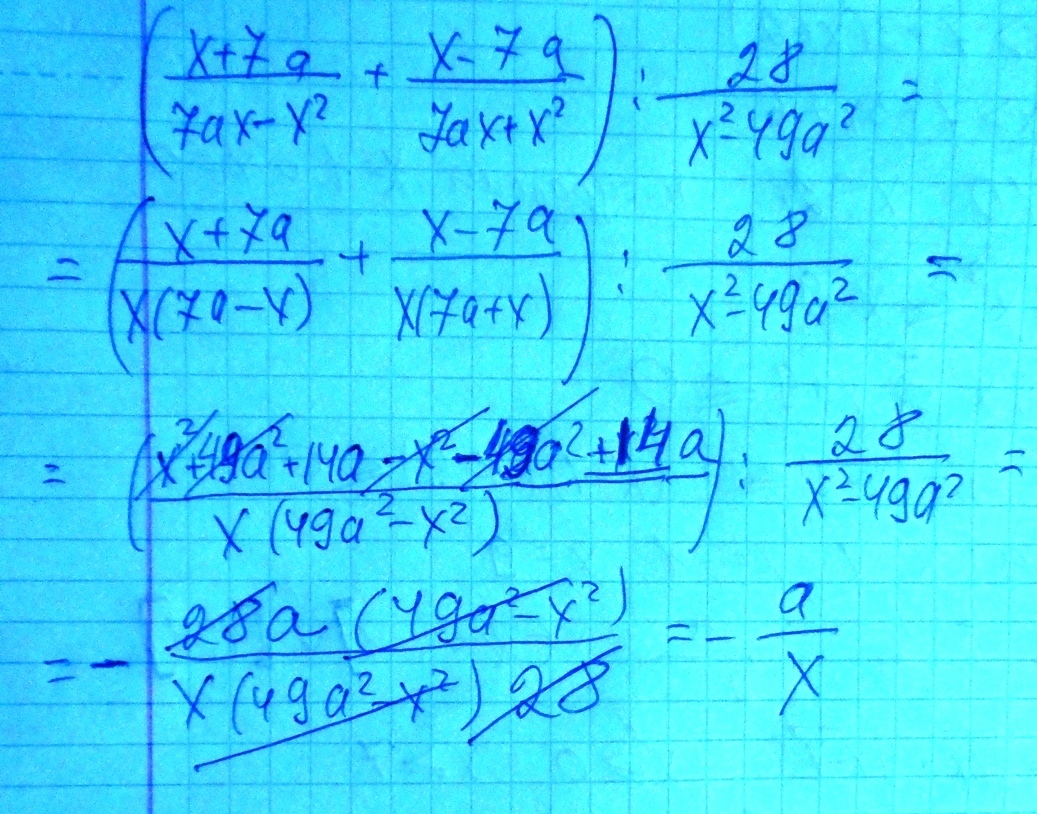 ( (x+7a)/(7ax-x²) + (x-7a)/(7ax+x²) ) : 28/(x²-49a²) =
= ( (x+7a)/(x(7a-x)) + (x-7a)/(x(7a+x)) ) : 28/(x²-49a²) =
= ( (x²+49a²+14a-x²-49a²+14a)/(x(49a²-x²)) ) : 28/(x²-49a²) =
= - (28a(49a²-x²))/(x(49a²-x²)28) = - a/x